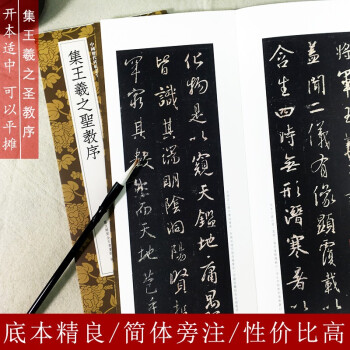 集王羲之圣教序
开本适中 可以平摊
集王羲之聖教序
盖聞二儀有像顯覆載以
含生四時無形潛寒暑以
化物是以窺天鑑地庸愚
皆識其端明陰洞陽賢
罕窮其數然而天地苞乎
底本精良/简体旁注/性价比高